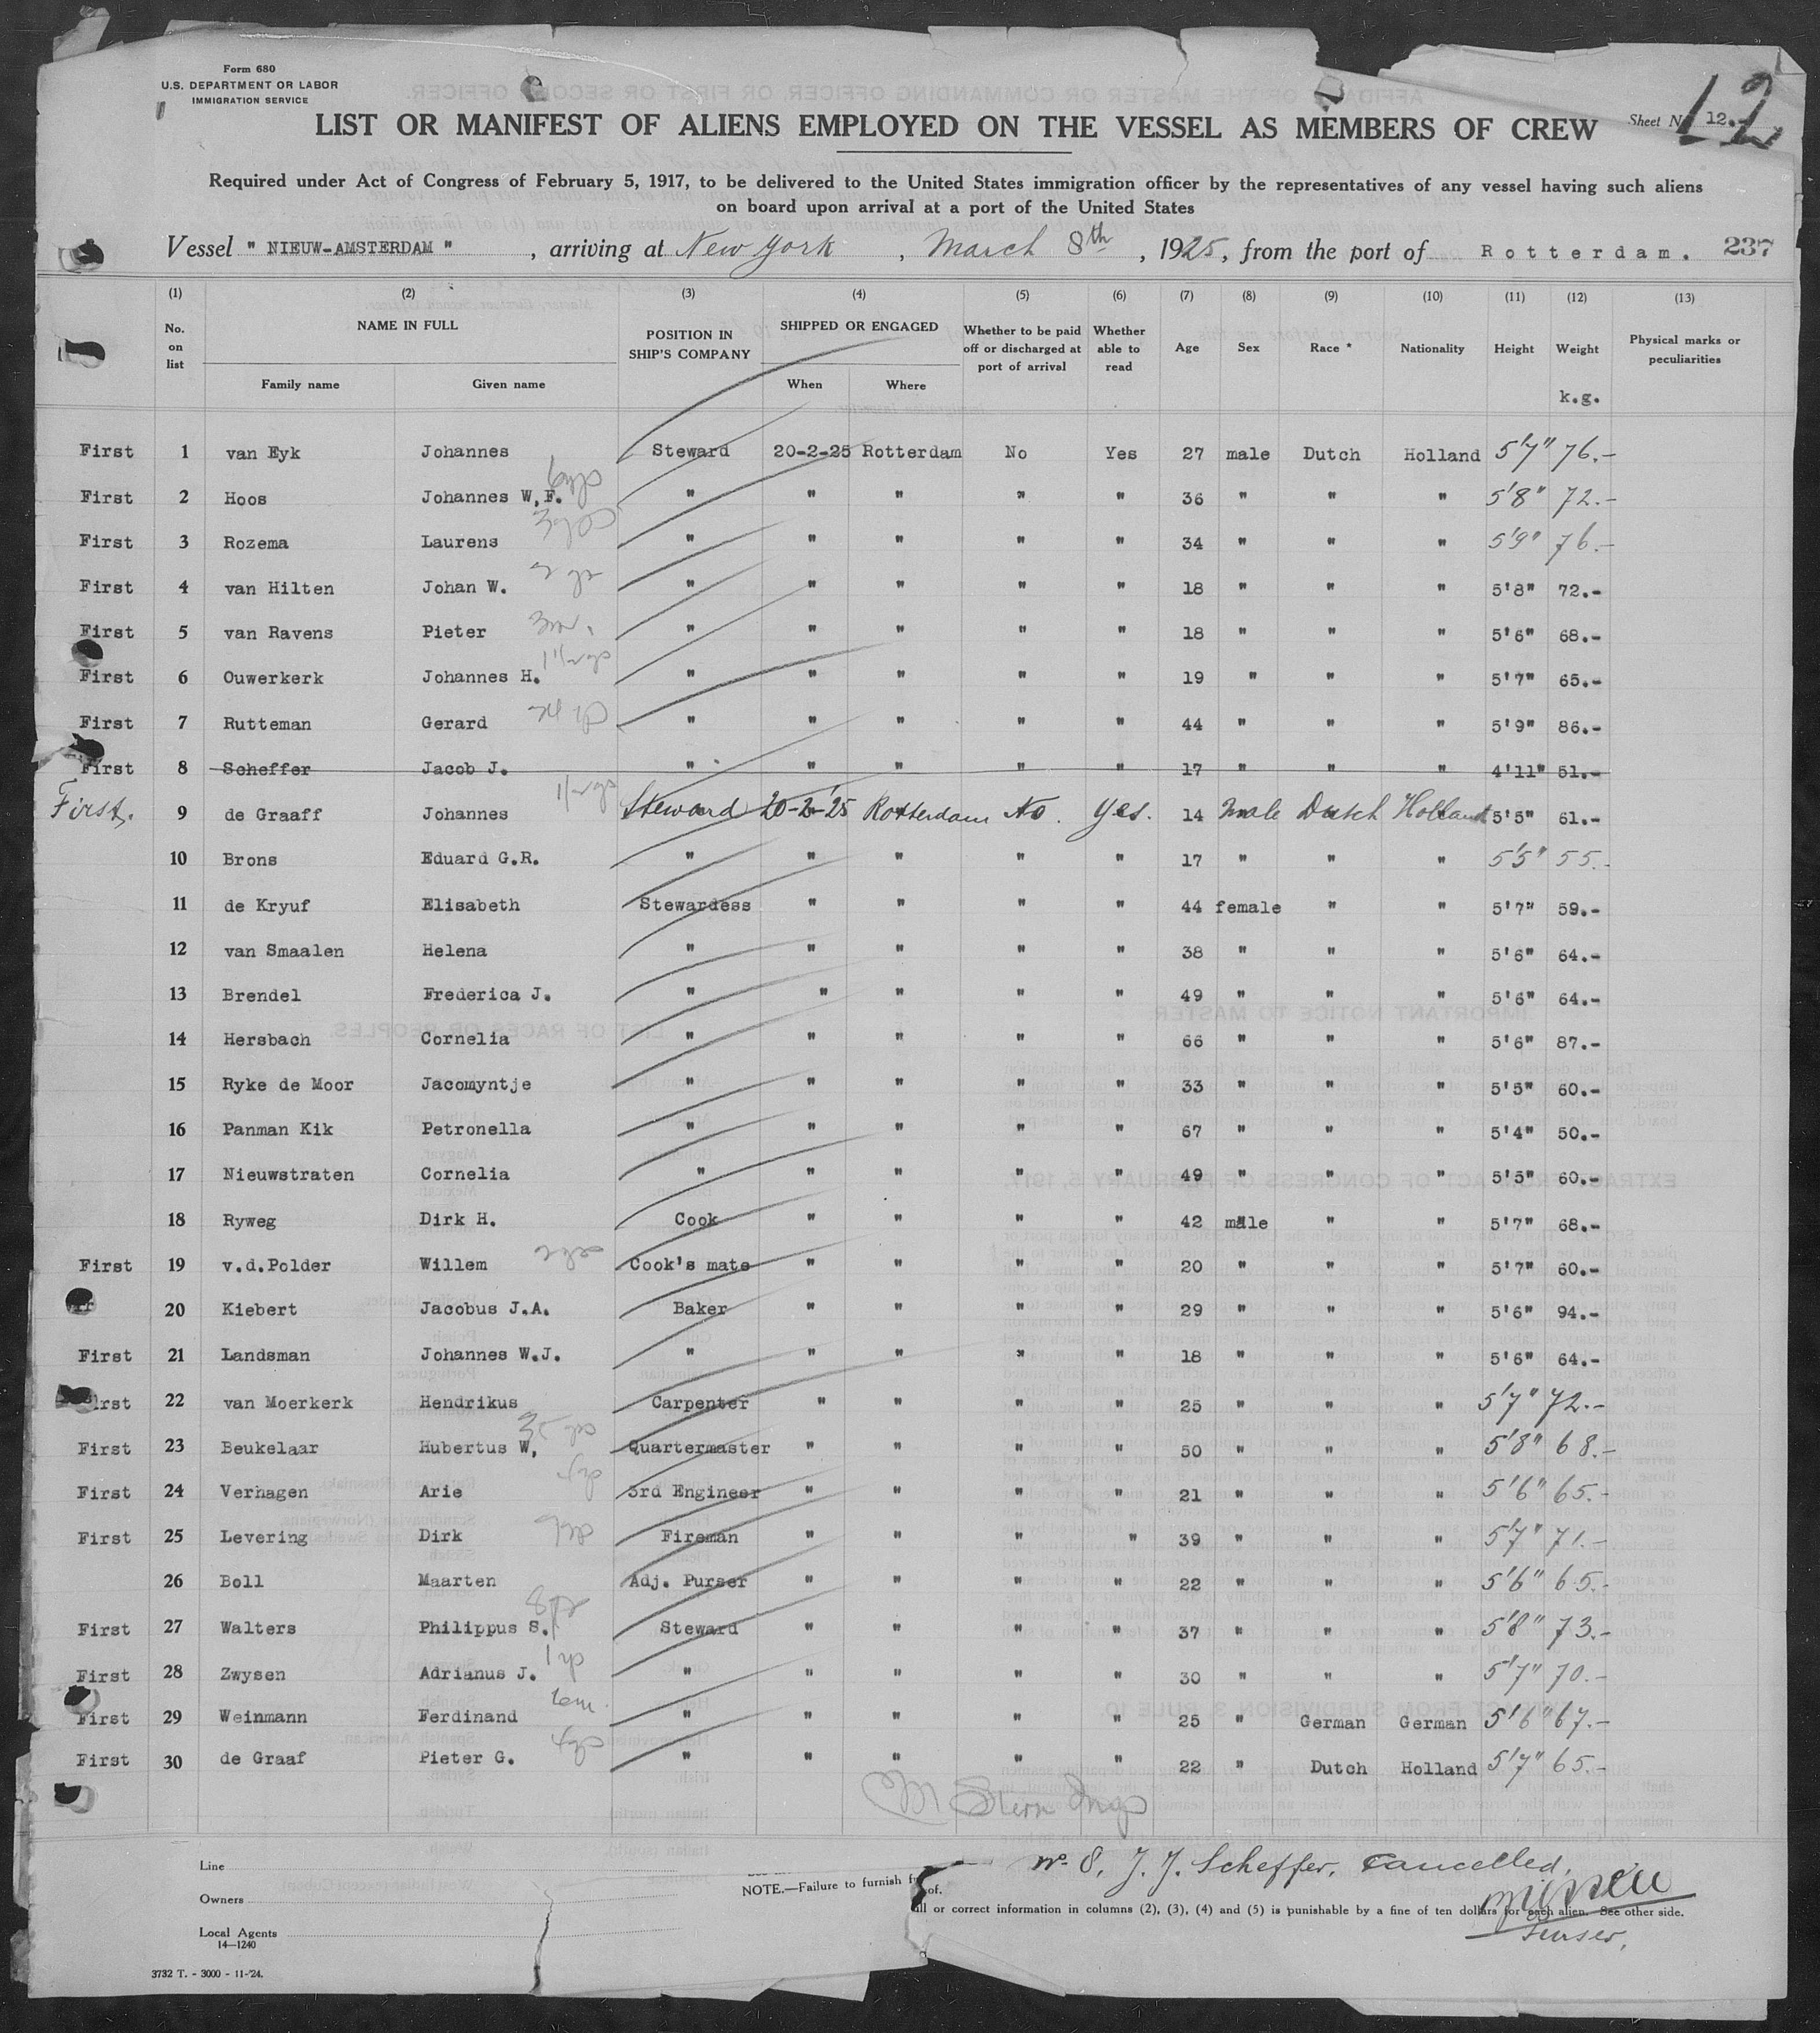 Form 680
U.S. DEPARTMENT OR LABOR
IMMIGRATION SERVICE
LIST OR MANIFEST OF ALIENS EMPLOYED ON THE VESSEL AS MEMBERS OF CREW
Sheet N 12. 12
Required under Act of Congress of February 5, 1917, to be delivered to the United States immigration officer by the representatives of any vessel having such aliens
on board upon arrival at a port of the United States
Vessel " NIEUW-AMSTERDAM " , arriving at New York , March 8th , 1925, from the port of Rotterdam. 237
(1) (2) (3) (4) (5) (6) (7) (8) (9) (10) (11) (12) (13)
No. on list NAME IN FULL Family name Given name POSITION IN SHIP'S COMPANY SHIPPED OR ENGAGED When Where Whether to be paid off or discharged at port of arrival Whether able to read Age Sex Race * Nationality Height Weight k.g. Physical marks or peculiarities
First 1 van Eyk Johannes Steward 20-2-25 Rotterdam No Yes 27 male Dutch Holland 5'7" 76.-
First 2 Hoos Johannes W.F. " " " " " 36 " " " 5'8" 72.-
First 3 Rozema Laurens " " " " " 34 " " " 5'9" 76.-
First 4 van Hilten Johan W. " " " " " 18 " " " 5'8" 72.-
First 5 van Ravens Pieter " " " " " 18 " " " 5'6" 68.-
First 6 Ouwerkerk Johannes H. " " " " " 19 " " " 5'7" 65.-
First 7 Rutteman Gerard " " " " " 44 " " " 5'9" 86.-
First 8 Scheffer Jacob J. " " " " " 17 " " " 4'11" 51.-
First. 9 de Graaff Johannes Steward 20-2-'25 Rotterdam No. Yes. 14 Male Dutch Holland 5'5" 61.-
10 Brons Eduard G.R. " " " " " 17 " " " 5'5" 55.
11 de Kryuf Elisabeth Stewardess " " " " 44 female " " 5'7" 59.-
12 van Smaalen Helena " " " " " 38 " " " 5'6" 64.-
13 Brendel Frederica J. " " " " " 49 " " " 5'6" 64.-
14 Hersbach Cornelia " " " " " 66 " " " 5'6" 87.-
15 Ryke de Moor Jacomyntje " " " " " 33 " " " 5'5" 60.-
16 Panman Kik Petronella " " " " " 67 " " " 5'4" 50.-
17 Nieuwstraten Cornelia " " " " " 49 " " " 5'5" 60.-
18 Ryweg Dirk H. Cook " " " " 42 male " " 5'7" 68.-
First 19 v.d.Polder Willem Cook's mate " " " " 20 " " " 5'7" 60.-
20 Kiebert Jacobus J.A. Baker " " " " 29 " " " 5'6" 94.-
First 21 Landsman Johannes W.J. " " " " " 18 " " " 5'6" 64.-
First 22 van Moerkerk Hendrikus Carpenter " " " " 25 " " " 5'7" 72.-
First 23 Beukelaar Hubertus W. Quartermaster " " " " 50 " " " 5'8" 68.-
First 24 Verhagen Arie 3rd Engineer " " " " 21 " " " 5'6" 65.-
First 25 Levering Dirk Fireman " " " " 39 " " " 5'7" 71.-
26 Boll Maarten Adj. Purser " " " " 22 " " " 5'6" 65.-
First 27 Walters Philippus S. Steward " " " " 37 " " " 5'8" 73.-
First 28 Zwysen Adrianus J. " " " " " 30 " " " 5'7" 70.-
First 29 Weinmann Ferdinand " " " " " 25 " German German 5'6" 67.-
First 30 de Graaf Pieter G. " " " " " 22 " Dutch Holland 5'7" 65.-
M Stern Insp
No 8, J. J. Scheffer, Cancelled.
Line
Owners
Local Agents
14—1240
NOTE.—Failure to furnish
of.
ll or correct information in columns (2), (3), (4) and (5) is punishable by a fine of ten dollars for each alien. See other side.
Purser.
3732 T. - 3000 - 11-'24.